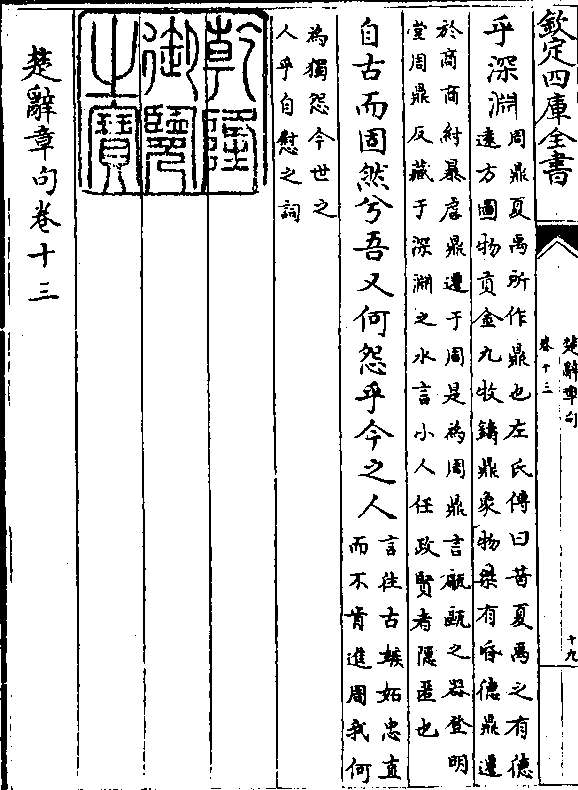 欽定四庫全書
楚辭章句
卷十三
十九
乎深淵
周鼎夏禹所作鼎也左氏傳曰昔夏禹之有德
遠方圖物貢金九牧鑄鼎象物桀有昏德鼎遷
於商商紂暴虐鼎遷于周是為周鼎言甂甌之器登明
堂周鼎反藏于深淵之水言小人任政賢者隱匿也
自古而固然兮吾又何怨乎今之人
言往古嫉妬忠直
而不肯進周我何
為獨怨今世之
人乎自慰之詞
乾隆
御覽
之寶
楚辭章句卷十三